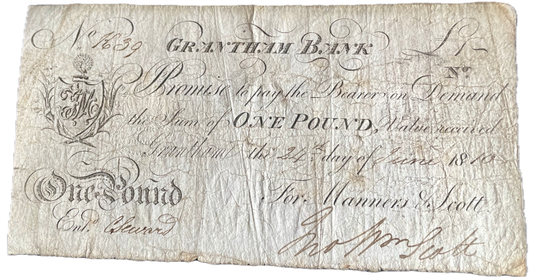 No. 1639 GRANTHAM BANK £1-
No.
I Promise to pay the Bearer on Demand
the Sum of ONE POUND, Value received
Grantham the 24th day of June 1810
One Pound For Manners & Scott
Entd.
Jno Wm Scott